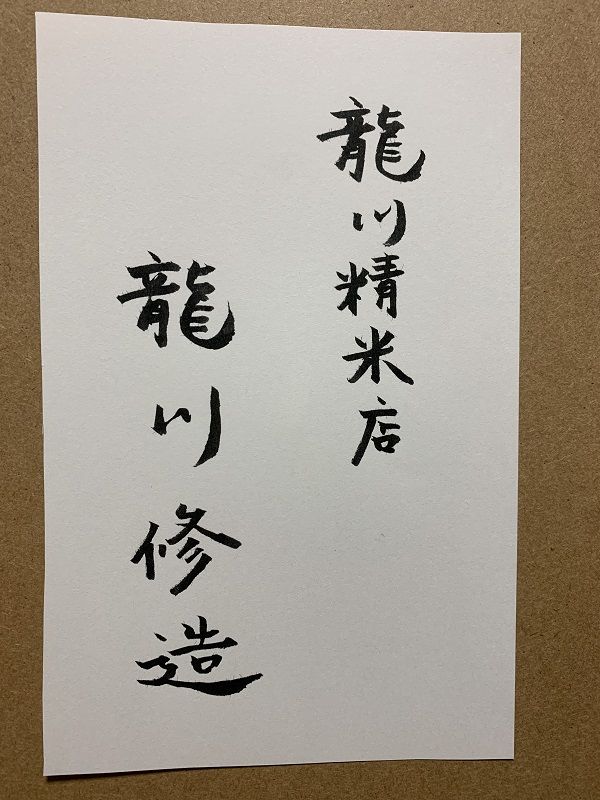 龍川精米店
龍川修造